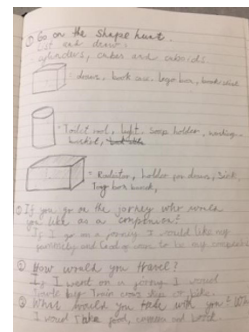 ① Go on the shape hunt.
list and draw:
cylinders, cubes and cuboids
draws, book case, lego box,
Toilet roll, light, soap holder, washing
basket,
Radiator, holder for draws, Sink,
Toy box board,
① If you go on the jorney who would
you like as a companion?
If I go on a jorney I would like my
family and to be my
② How would you travel?
If I went on a jorney I woud
travle by: Train cars ship or bike.
③ What would you take with you?
I woud take food, and